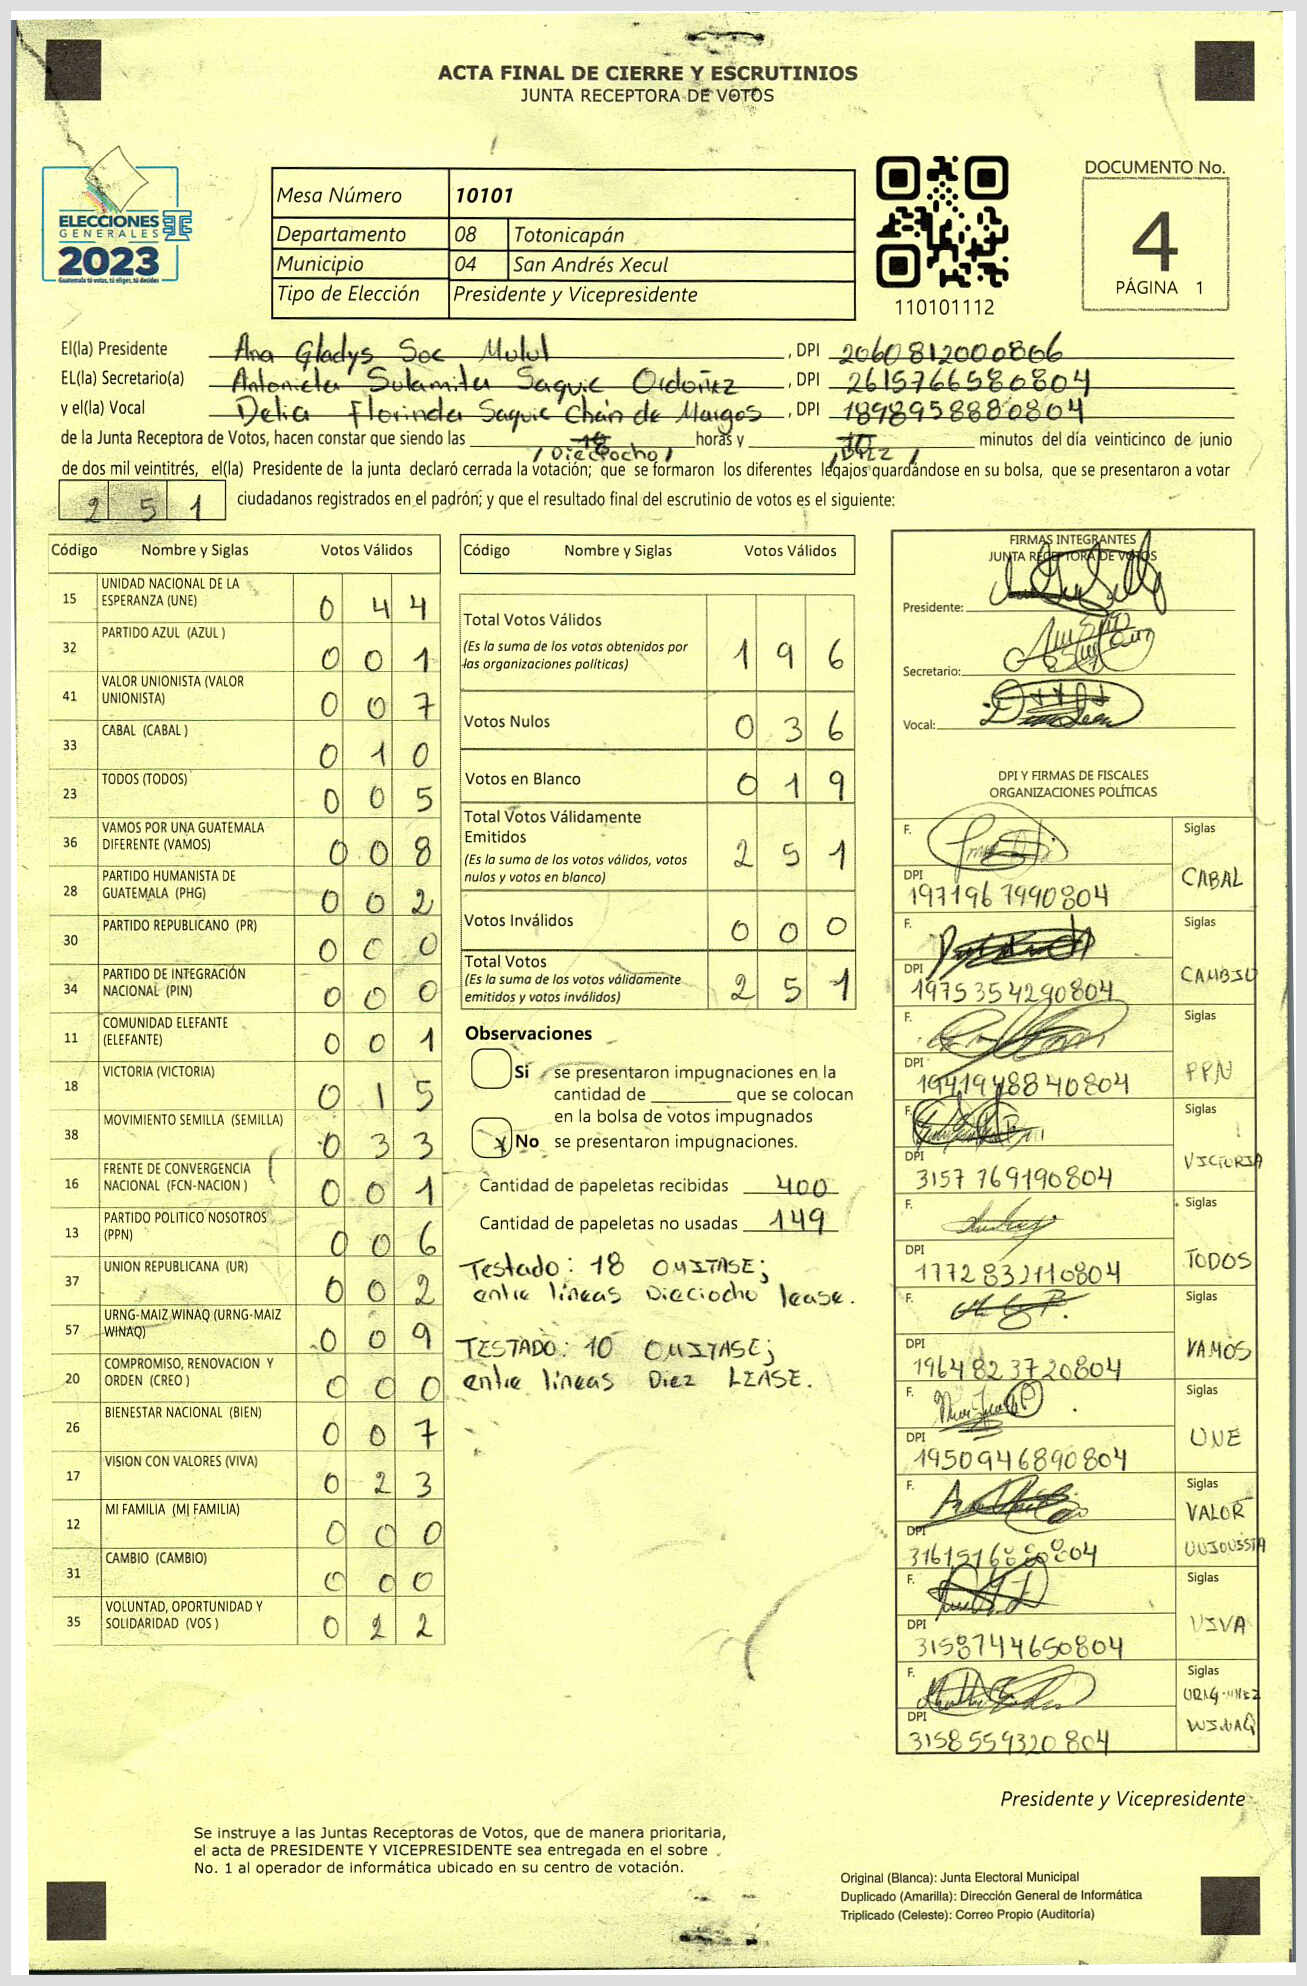 ACTA FINAL DE CIERRE Y ESCRUTINIOS
JUNTA RECEPTORA DE VOTOS
ELECCIONES
GENERALES
2023
Guatemala tú votas, tú eliges, tú decides
Mesa Número 10101
Departamento 08 Totonicapán
Municipio 04 San Andrés Xecul
Tipo de Elección Presidente y Vicepresidente
110101112
DOCUMENTO No.
4
PÁGINA 1
El(la) Presidente Ana Gladys Soc Mulul , DPI 2060812000806
EL(la) Secretario(a) Antonieta Sulamita Saquic Ordoñez , DPI 2615766580804
y el(la) Vocal Delia Florinda Saquic Chán de Margos , DPI 1898958880804
de la Junta Receptora de Votos, hacen constar que siendo las 18 horas y 10 minutos del día veinticinco de junio
/ Dieciocho / / Diez /
de dos mil veintitrés, el(la) Presidente de la junta declaró cerrada la votación; que se formaron los diferentes legajos guardándose en su bolsa, que se presentaron a votar
2 5 1 ciudadanos registrados en el padrón; y que el resultado final del escrutinio de votos es el siguiente:
Código Nombre y Siglas Votos Válidos
15 UNIDAD NACIONAL DE LA ESPERANZA (UNE) 0 4 4
32 PARTIDO AZUL (AZUL ) 0 0 1
41 VALOR UNIONISTA (VALOR UNIONISTA) 0 0 7
33 CABAL (CABAL ) 0 1 0
23 TODOS (TODOS) 0 0 5
36 VAMOS POR UNA GUATEMALA DIFERENTE (VAMOS) 0 0 8
28 PARTIDO HUMANISTA DE GUATEMALA (PHG) 0 0 2
30 PARTIDO REPUBLICANO (PR) 0 0 0
34 PARTIDO DE INTEGRACIÓN NACIONAL (PIN) 0 0 0
11 COMUNIDAD ELEFANTE (ELEFANTE) 0 0 1
18 VICTORIA (VICTORIA) 0 1 5
38 MOVIMIENTO SEMILLA (SEMILLA) 0 3 3
16 FRENTE DE CONVERGENCIA NACIONAL (FCN-NACION ) 0 0 1
13 PARTIDO POLITICO NOSOTROS (PPN) 0 0 6
37 UNION REPUBLICANA (UR) 0 0 2
57 URNG-MAIZ WINAQ (URNG-MAIZ WINAQ) 0 0 9
20 COMPROMISO, RENOVACION Y ORDEN (CREO ) 0 0 0
26 BIENESTAR NACIONAL (BIEN) 0 0 7
17 VISION CON VALORES (VIVA) 0 2 3
12 MI FAMILIA (MI FAMILIA) 0 0 0
31 CAMBIO (CAMBIO) 0 0 0
35 VOLUNTAD, OPORTUNIDAD Y SOLIDARIDAD (VOS ) 0 2 2
Código Nombre y Siglas Votos Válidos
Total Votos Válidos 1 9 6
(Es la suma de los votos obtenidos por
las organizaciones políticas)
Votos Nulos 0 3 6
Votos en Blanco 0 1 9
Total Votos Válidamente
Emitidos 2 5 1
(Es la suma de los votos válidos, votos
nulos y votos en blanco)
Votos Inválidos 0 0 0
Total Votos 2 5 1
(Es la suma de los votos válidamente
emitidos y votos inválidos)
Observaciones
Si se presentaron impugnaciones en la
cantidad de ________ que se colocan
en la bolsa de votos impugnados
x No se presentaron impugnaciones.
Cantidad de papeletas recibidas 400
Cantidad de papeletas no usadas 149
Testado: 18 OMITASE;
entre líneas Dieciocho lease.
TESTADO: 10 OMITASE;
entre líneas Diez LEASE.
FIRMAS INTEGRANTES
JUNTA RECEPTORA DE VOTOS
Presidente:
Secretario:
Vocal:
DPI Y FIRMAS DE FISCALES
ORGANIZACIONES POLÍTICAS
F. Siglas
DPI CABAL
1971967990804
F. Siglas
DPI CAMBIO
1975354290804
F. Siglas
DPI PPN
1941948840804
F. Siglas
DPI VICTORIA
3157769190804
F. Siglas
DPI TODOS
1772832110804
F. Siglas
DPI VAMOS
1964823720804
F. Siglas
DPI UNE
1950946890804
F. Siglas
VALOR
DPI UNIONISTA
F. Siglas
DPI VIVA
3158744650804
F. Siglas
URNG-MAIZ
DPI WINAQ
3158559320804
Presidente y Vicepresidente
Se instruye a las Juntas Receptoras de Votos, que de manera prioritaria,
el acta de PRESIDENTE Y VICEPRESIDENTE sea entregada en el sobre
No. 1 al operador de informática ubicado en su centro de votación.
Original (Blanca): Junta Electoral Municipal
Duplicado (Amarilla): Dirección General de Informática
Triplicado (Celeste): Correo Propio (Auditoría)